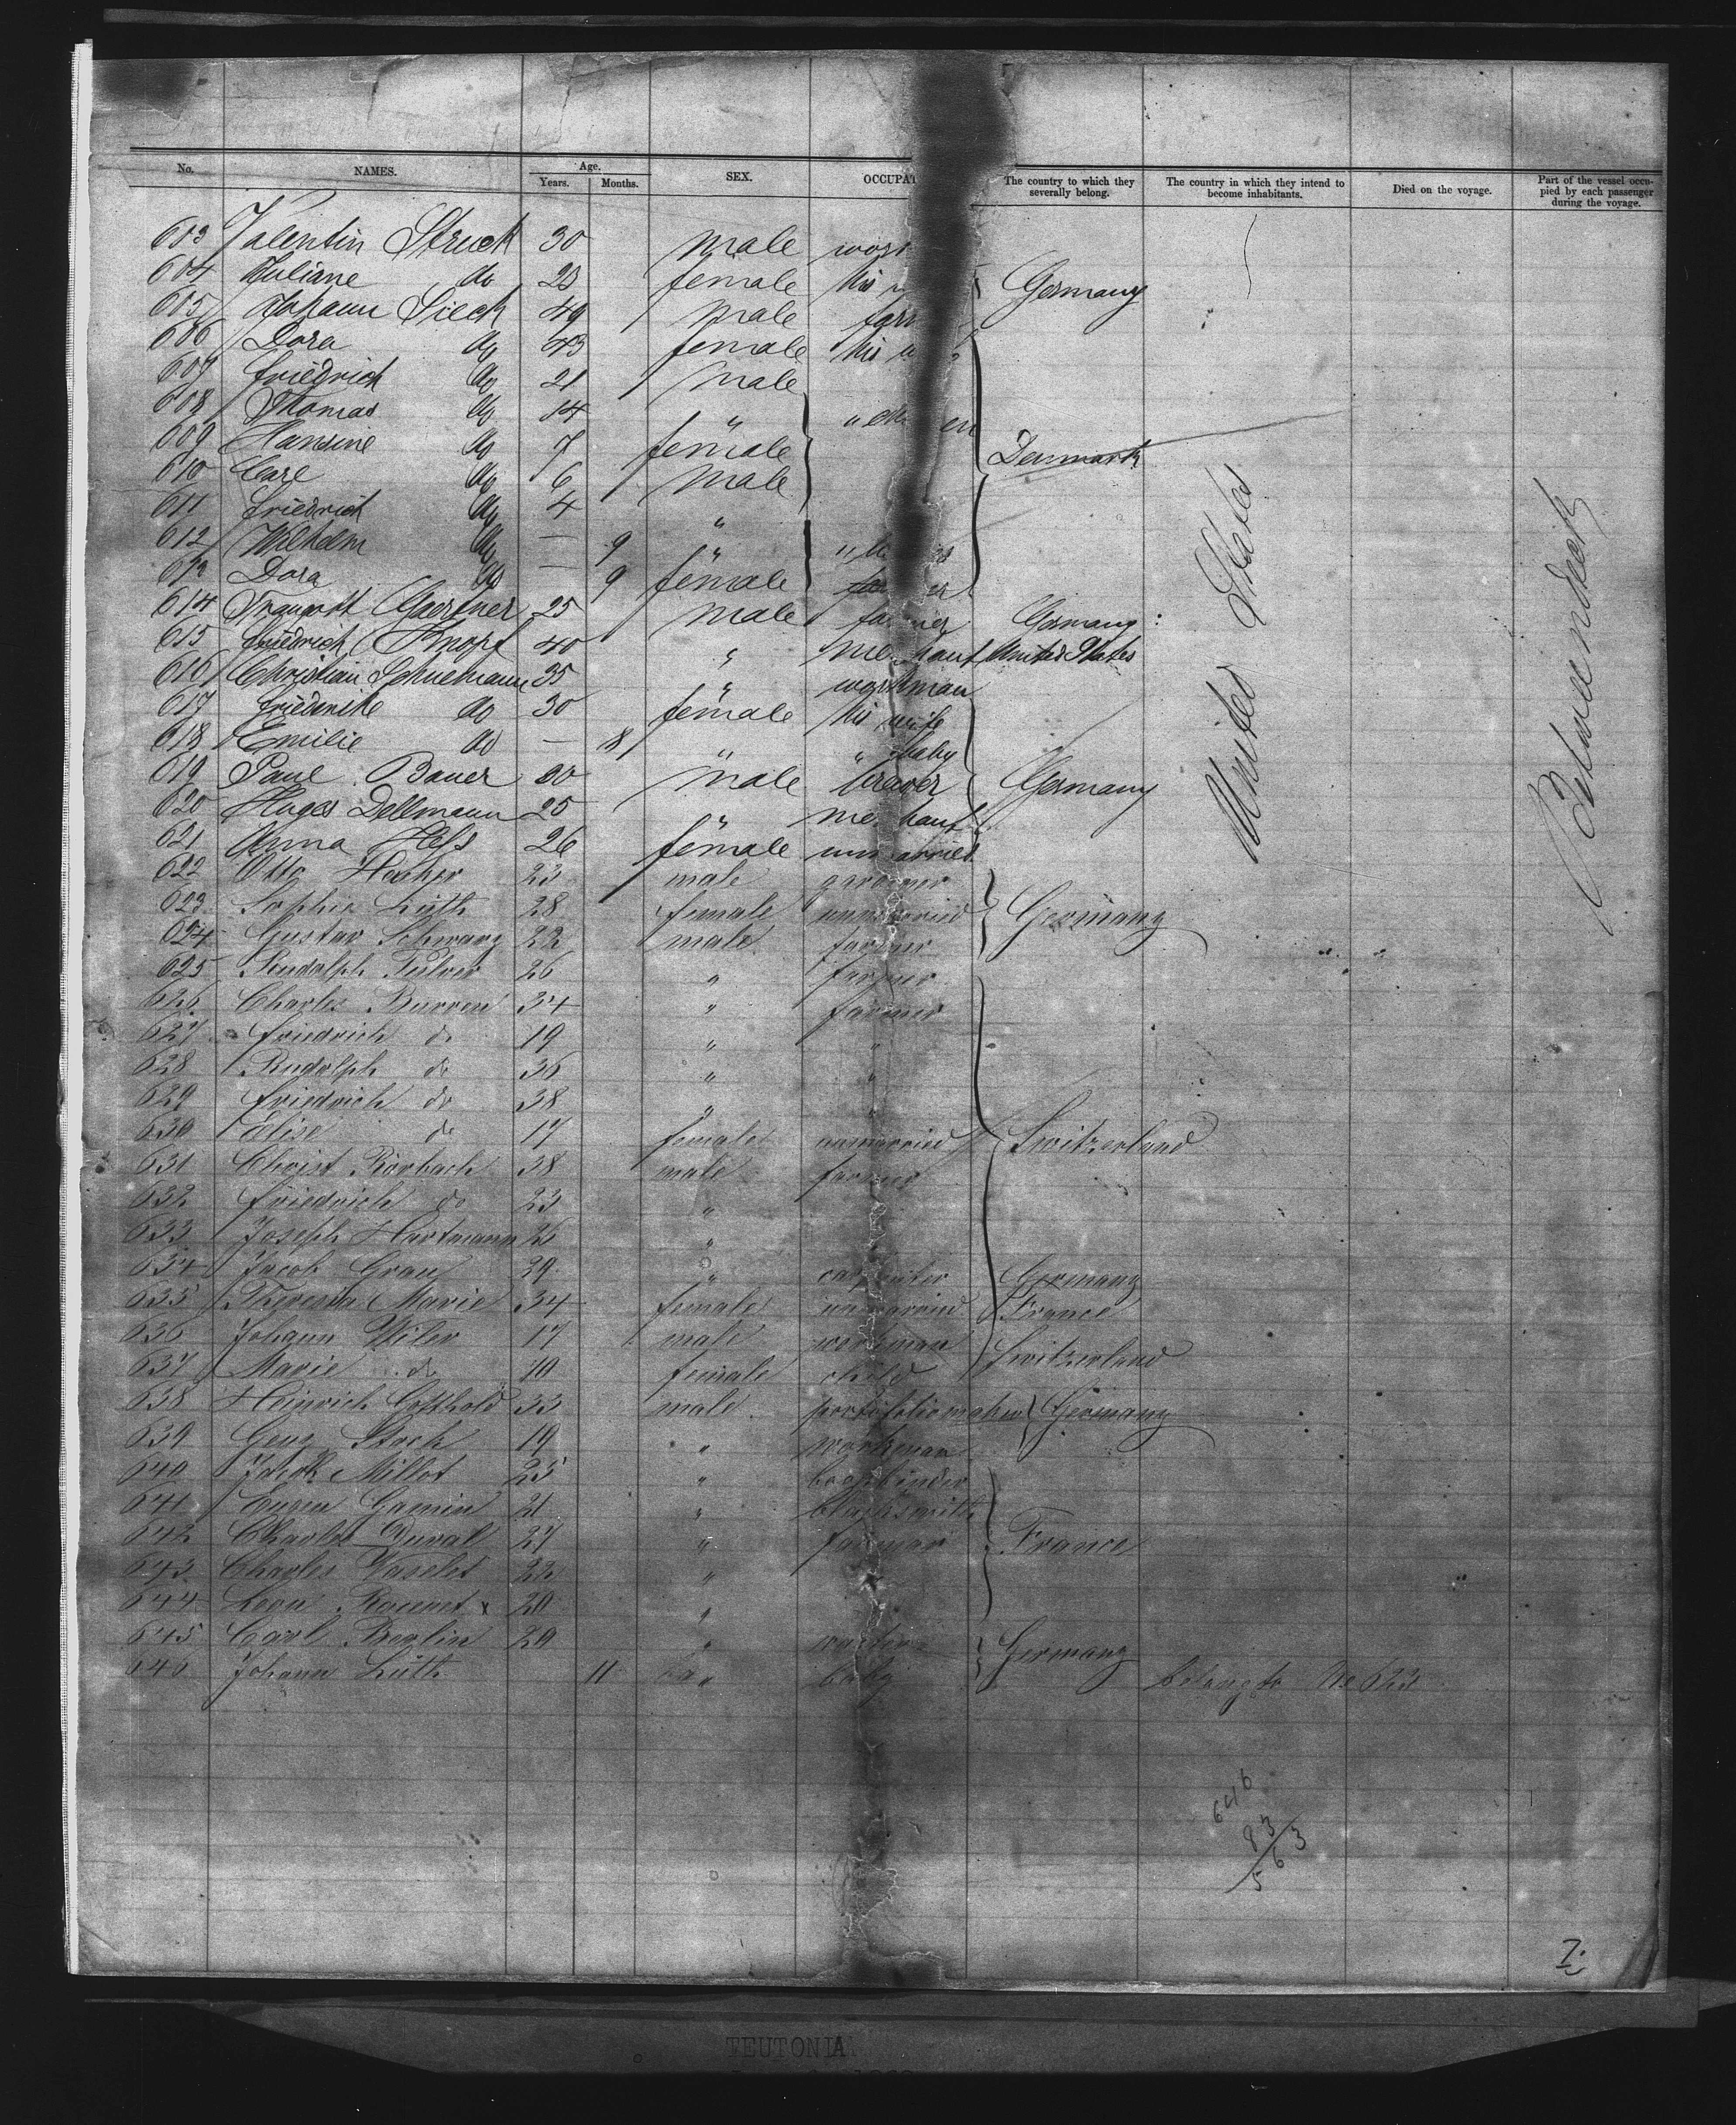 No. NAMES. Age. Years. Months. SEX. OCCUPAT The country to which they severally belong. The country in which they intend to become inhabitants. Died on the voyage. Part of the vessel occupied by each passenger during the voyage.
603 Valentin Struck 30 male
604 Juliane do 23 female his Germany
605 Johann Sieck 49 male
606 Dora do 43 female his
607 Friedrich do 21 male
608 Thomas do 14 "
609 Hansine do 7 female Denmark
610 Carl do 6 male
611 Friedrich do 4 "
612 Wilhelm do — 9 "
613 Dora do — 9 female
614 Traugott Gaertner 25 male farmer Germany
615 Friedrich Knopf 40 " merchant United States
616 Christian Schuemann 35 " workman
617 Friederike do 30 female his wife
618 Emilie do — 8 " " baby
619 Paul Bauer 20 male Germany
620 Hugo Dellmann 25 merchant
621 Anna Hess 26 female unmarried
622 Otto 23 male gardener
623 Sophie Lüth 28 female unmarried Germany
624 Gustav Schwarz 22 male farmer
625 Rudolph 26 " farmer
626 Charles Burren 34 " farmer
627 Friedrich do 19 " "
628 Rudolph do 36 " "
629 Friedrich do 38 " "
630 Elise do 17 female unmarried Switzerland
631 Christ Rörbach 38 male farmer
632 Friedrich do 23 "
633 Joseph Hartmann 26 "
634 Jacob Grau 29 " carpenter Germany
635 Theresia Marie 34 female unmarried France
636 Johann Wiler 17 male workman Switzerland
637 Marie do 10 female child
638 Heinrich Cotthold 33 male portfoliomaker Germany
639 Georg Stock 19 " workman
640 Jacob Millot 25 " bookbinder
641 Eugen Gamin 21 " blacksmith
642 Charles Duval 27 " farmer France
643 Charles Vaselet 22 "
644 Leon x 20 "
645 Carl Beglin 29 " Germany
646 Johann Lüth 11 " baby belongs to No 623
United States
Between deck
646
83
563
7
TEUTONIA